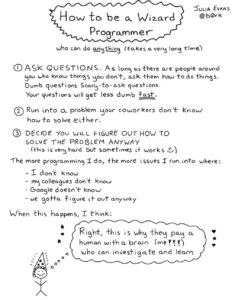 How to be a Wizard
Programmer
JULIA EVANS
@b0rk
who can do anything (takes a very long time)
① ASK QUESTIONS. As long as there are people around
you who know things you don't, ask them how to do things.
Dumb questions. Scary-to-ask questions.
Your questions will get less dumb fast.
② Run into a problem your coworkers don't know
how to solve either.
③ DECIDE YOU WILL FIGURE OUT HOW TO
SOLVE THE PROBLEM ANYWAY
(this is very hard but sometimes it works ☺)
The more programming I do, the more issues I run into where:
- I don't know
- my colleagues don't know
- Google doesn't know
- we gotta figure it out anyway
When this happens, I think:
Right, this is why they pay a
human with a brain (me!!!)
who can investigate and learn